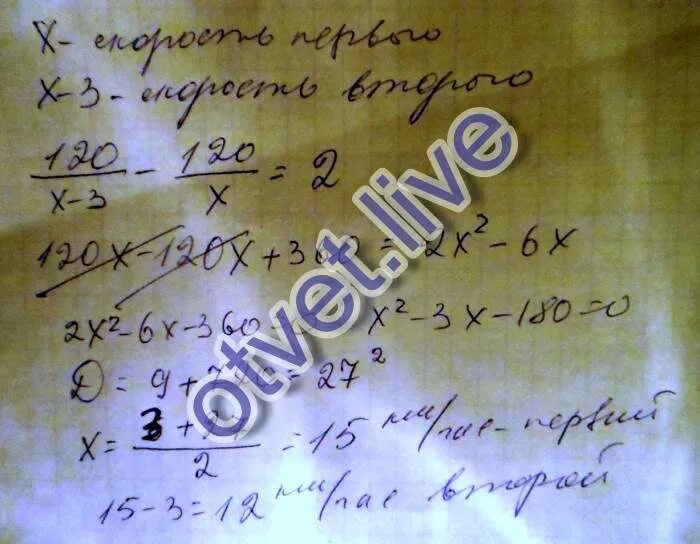 x - скорость первого
x-3 - скорость второго
120/x-3 - 120/x = 2
120x - 120x + 360 = 2x² - 6x
2x² - 6x - 360 = 0 x² - 3x - 180 = 0
D = 9 + 720 = 27²
x = 3 + 27/2 = 15 км/час - первый
15 - 3 = 12 км/час второй
otvet.live